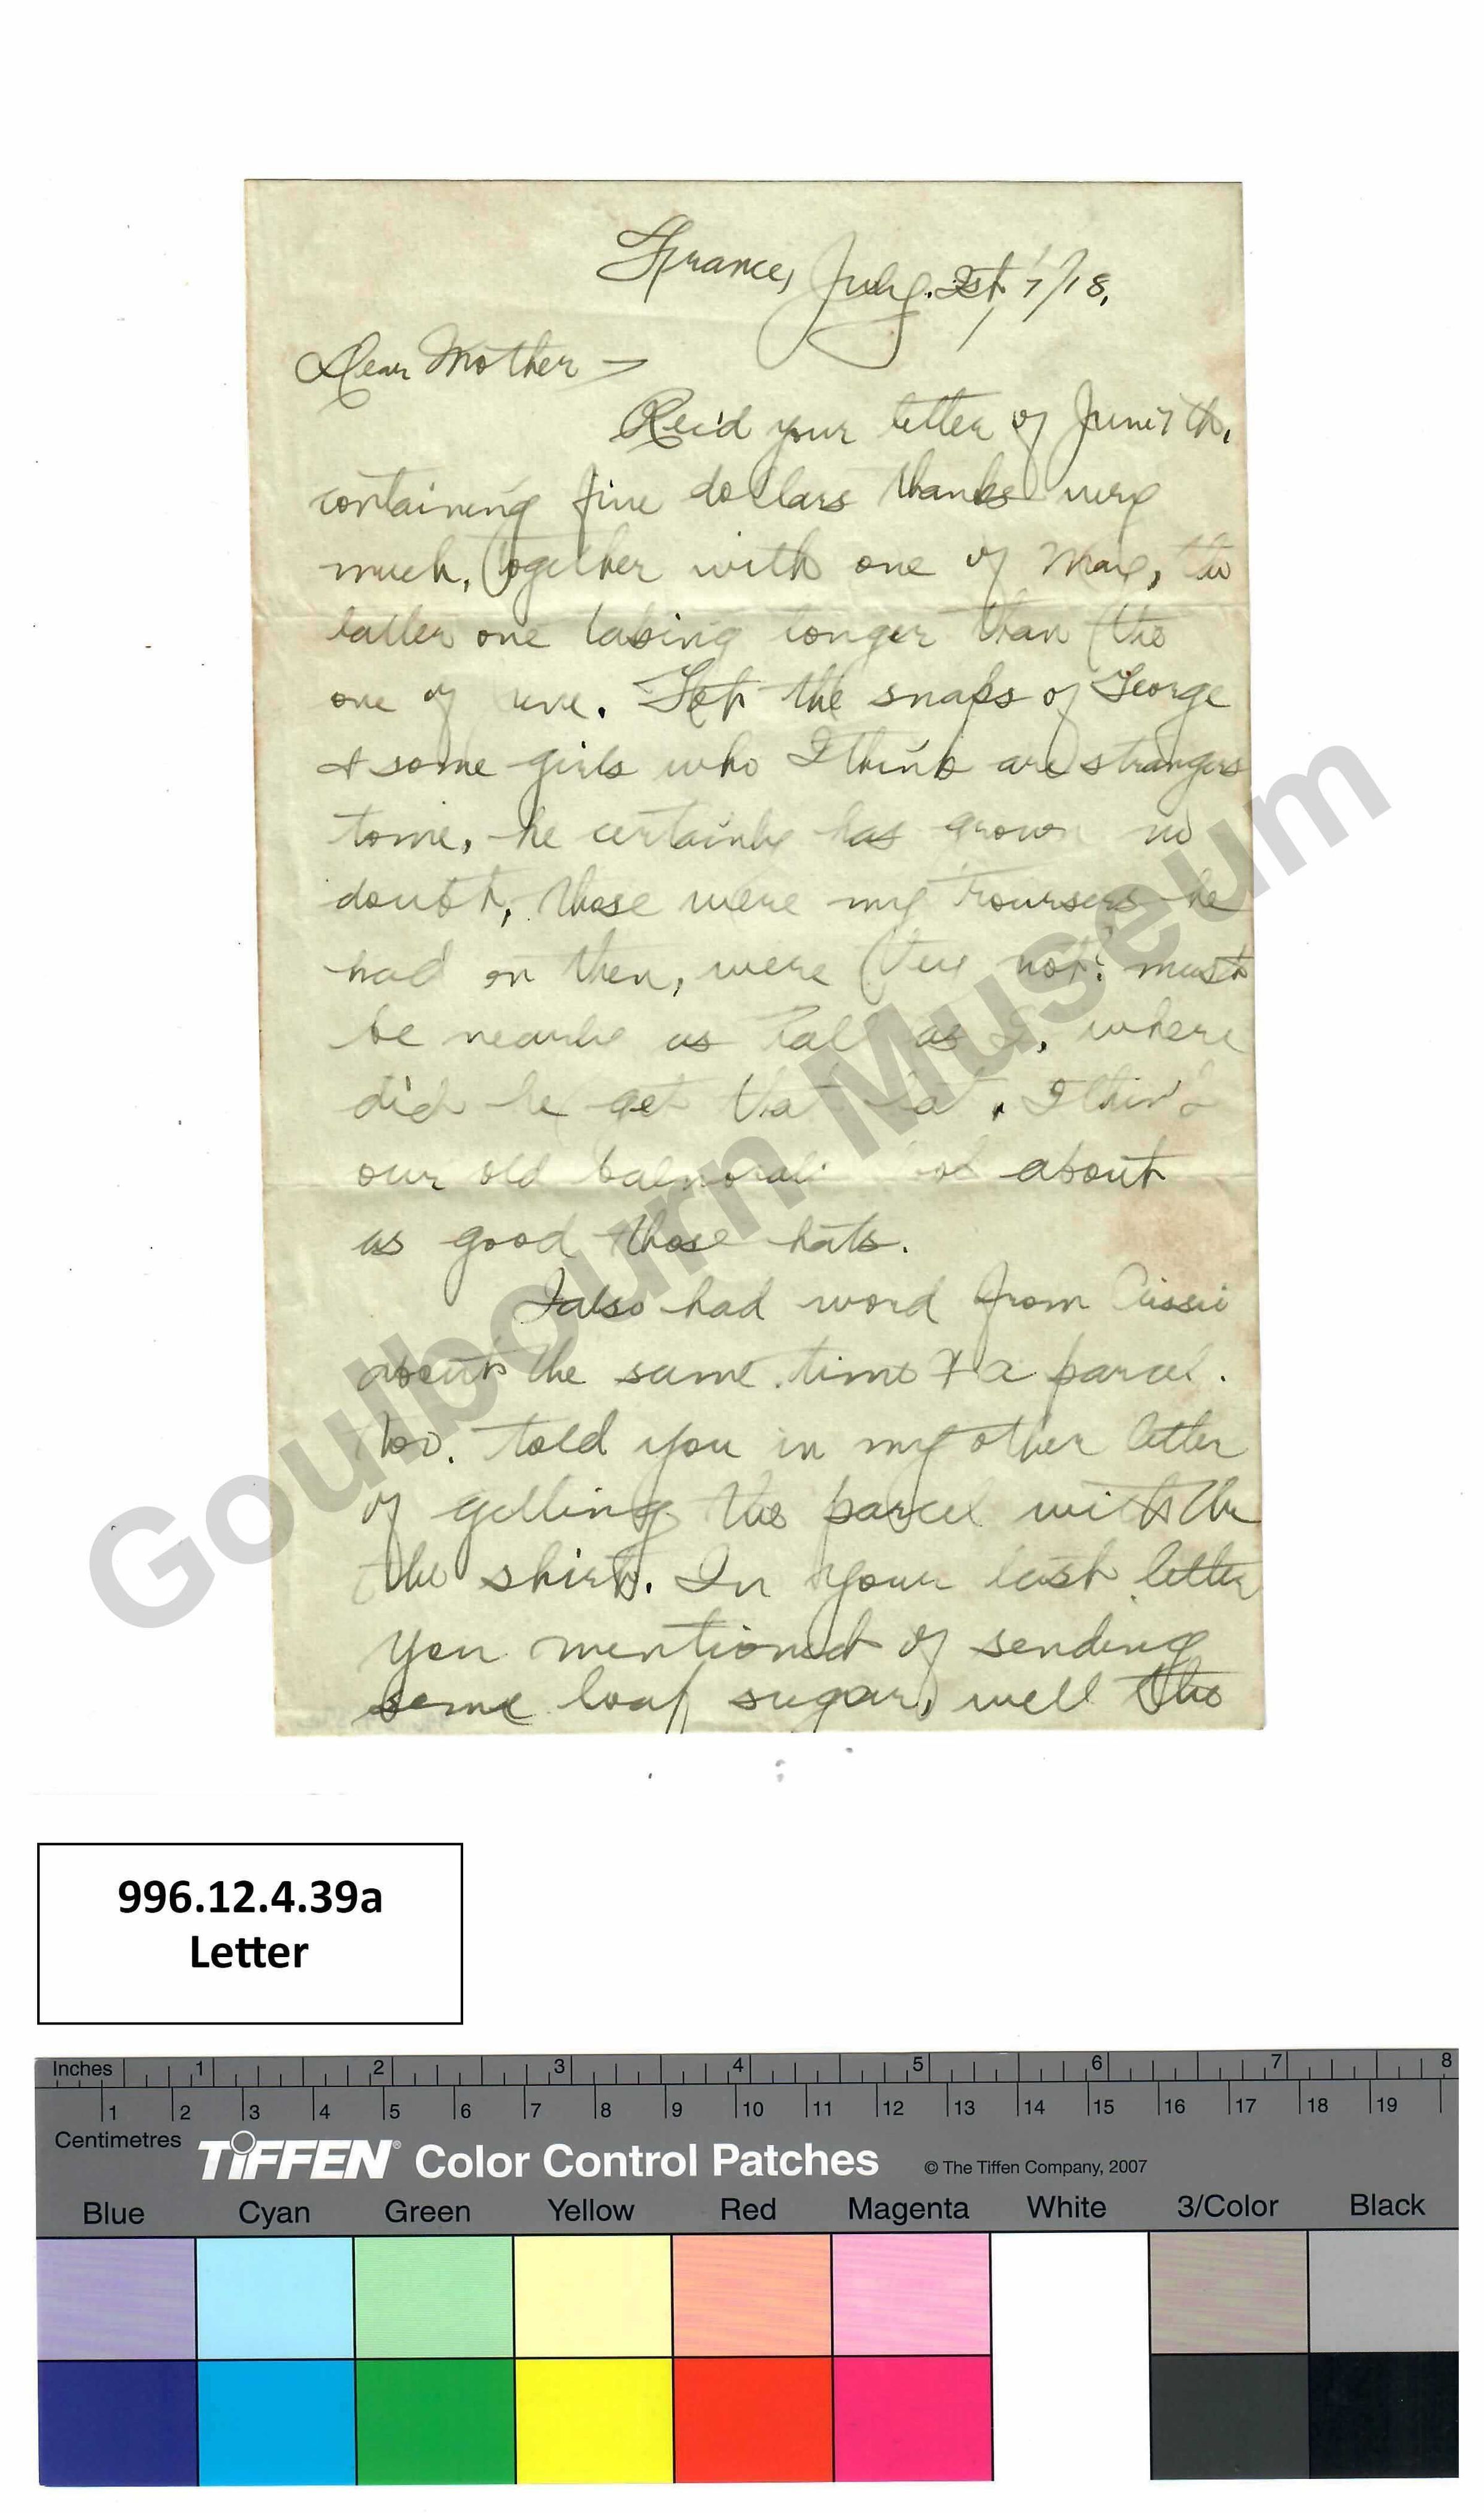 France, July. 21st, 7/18,
Dear Mother —
Rec'd your letter of June 7th,
containing five dollars thanks very
much, together with one of May, the
latter one taking longer than the
one of June. Got the snaps of George
& some girls who I think are strangers
to me, he certainly has grown no
doubt, those were my trousers he
had on then, were they not? must
be nearly as tall as I, where
did he get that hat. I think
our old balmorals look about
as good those hats.
I also had word from Cissie
about the same time & a parcel.
too. told you in my other letter
of getting the parcel with the
the shirt. In your last letter
you mentioned of sending
some loaf sugar, well the
Goulbourn Museum
996.12.4.39a
Letter
Inches 1 2 3 4 5 6 7 8
1 2 3 4 5 6 7 8 9 10 11 12 13 14 15 16 17 18 19
Centimetres
TIFFEN® Color Control Patches © The Tiffen Company, 2007
Blue Cyan Green Yellow Red Magenta White 3/Color Black